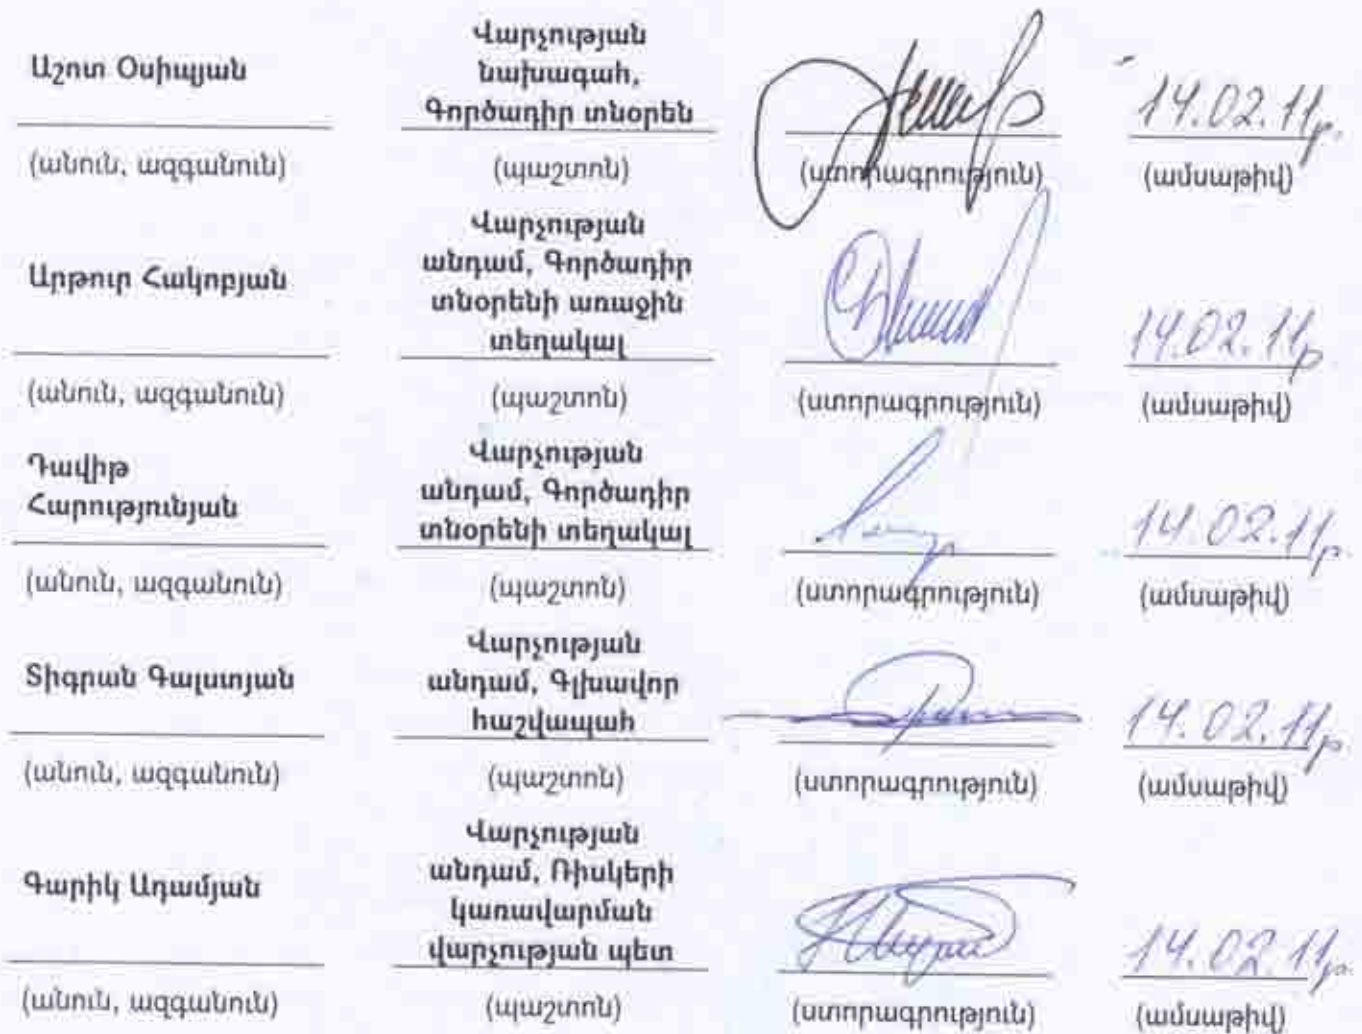 Աշոտ Օսիպյան
Վարչության
նախագահ,
Գործադիր տնօրեն
14.02.11թ.
(անուն, ազգանուն)
(պաշտոն)
(ստորագրություն)
(ամսաթիվ)
Արթուր Հակոբյան
Վարչության
անդամ, Գործադիր
տնօրենի առաջին
տեղակալ
14.02.11թ.
(անուն, ազգանուն)
(պաշտոն)
(ստորագրություն)
(ամսաթիվ)
Դավիթ
Հարությունյան
Վարչության
անդամ, Գործադիր
տնօրենի տեղակալ
14.02.11թ.
(անուն, ազգանուն)
(պաշտոն)
(ստորագրություն)
(ամսաթիվ)
Տիգրան Գալստյան
Վարչության
անդամ, Գլխավոր
հաշվապահ
14.02.11թ.
(անուն, ազգանուն)
(պաշտոն)
(ստորագրություն)
(ամսաթիվ)
Գարիկ Ադամյան
Վարչության
անդամ, Ռիսկերի
կառավարման
վարչության պետ
14.02.11թ.
(անուն, ազգանուն)
(պաշտոն)
(ստորագրություն)
(ամսաթիվ)